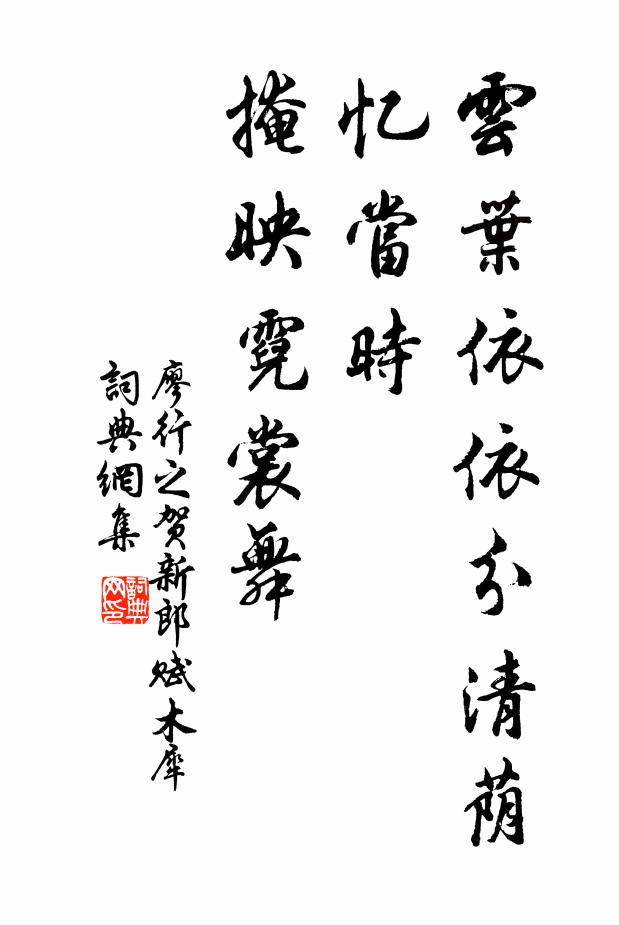 雲葉依依分清荫
忆當時
掩映霓裳舞
廖行之贺新郎赋木犀
詞典網集
詞典网印